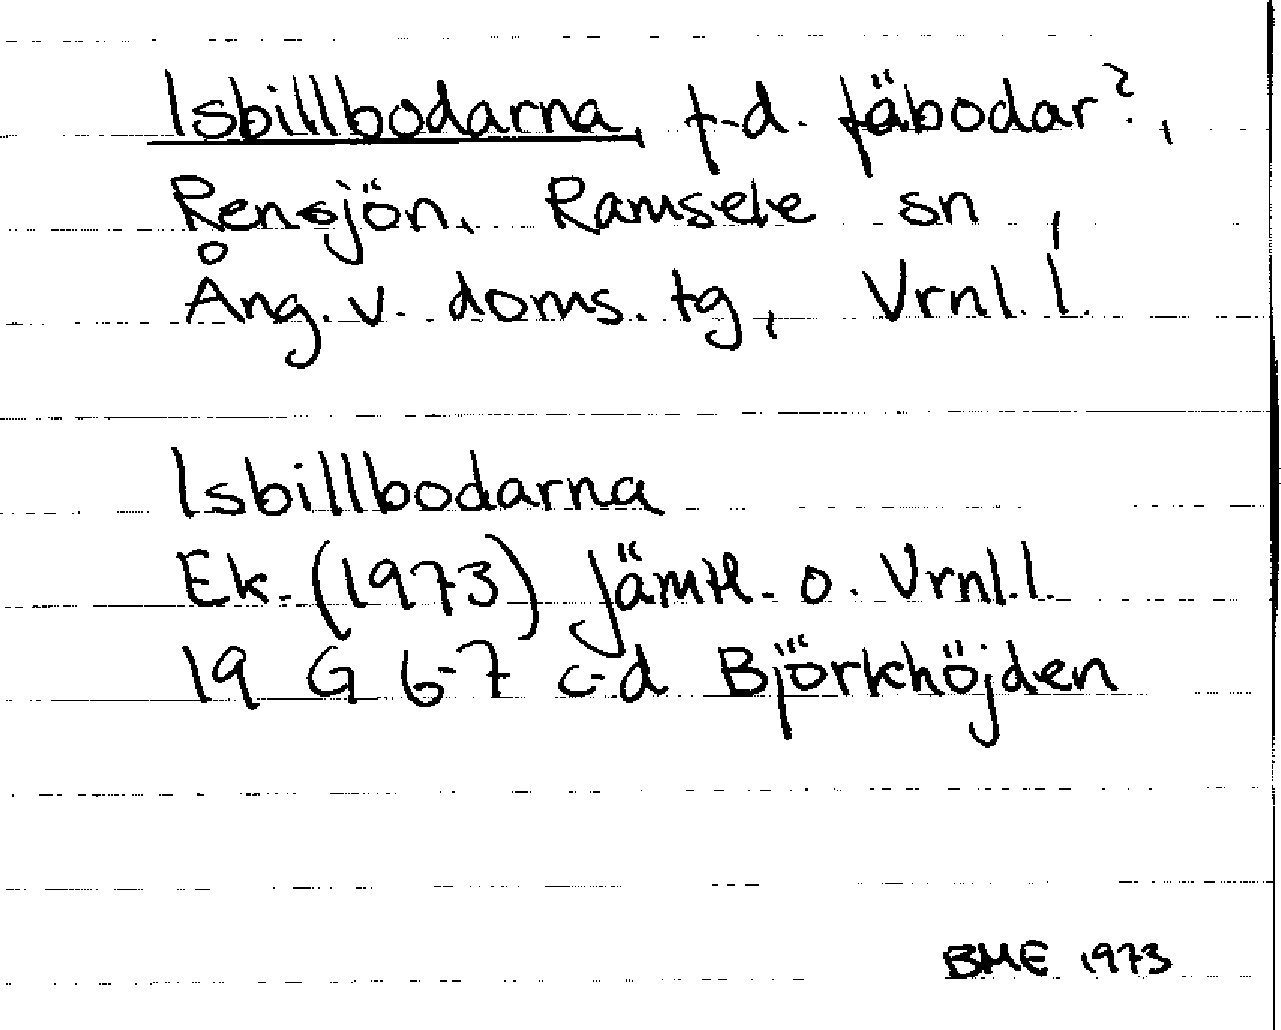 Isbillbodarna, f.d. fäbodar?,
Rensjön, Ramsele sn,
Ång. v. doms. tg, Vrnl. l.
Isbillbodarna
Ek. (1973) Jämtl. o. Vrnl. l.
19 G 6-7 c-d Björkhöjden
BME 1973